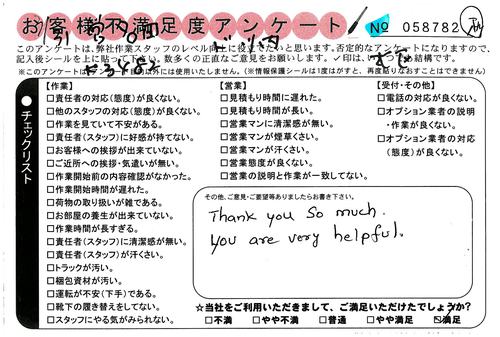 お客様不満足度アンケート
№ 058782
このアンケートは、弊社作業スタッフのレベル向上に役立てたいと思います。否定的なアンケートになりますので、
記入後シールを上に貼って下さい。数多くの正直なご意見をお願いします。✓印は、
※このアンケートは 以外には使用いたしません。(※情報保護シールは1度はがすと、再度貼りなおすことはできません)
チェックリスト
【作業】
□責任者の対応(態度)が良くない。
□他のスタッフの対応(態度)が良くない。
□作業を見ていて不安がある。
□責任者(スタッフ)に好感が持てない。
□お客様への挨拶が出来ていない。
□ご近所への挨拶・気遣いが無い。
□作業開始前の内容確認がなかった。
□作業開始時間が遅れた。
□荷物の取り扱いが雑である。
□お部屋の養生が出来ていない。
□作業時間が長すぎる。
□責任者(スタッフ)に清潔感が無い。
□責任者(スタッフ)が汗くさい。
□トラックが汚い。
□梱包資材が汚い。
□運転が不安(下手)である。
□靴下の履き替えをしてない。
□スタッフにやる気がみられない。
【営業】
□見積もり時間に遅れた。
□見積もり時間が長い。
□営業マンに清潔感が無い。
□営業マンが煙草くさい。
□営業マンが汗くさい。
□営業態度が良くない。
□営業の説明と作業が一致してない。
【受付・その他】
□電話の対応が良くない。
□オプション業者の説明
・作業が良くない。
□オプション業者の対応
(態度)が良くない。
その他、ご意見・ご要望等ありましたらお書き下さい。
Thank you so much.
You are very helpful.
★当社をご利用いただきまして、ご満足いただけたでしょうか?
□不満 □やや不満 □普通 □やや満足 ☑満足